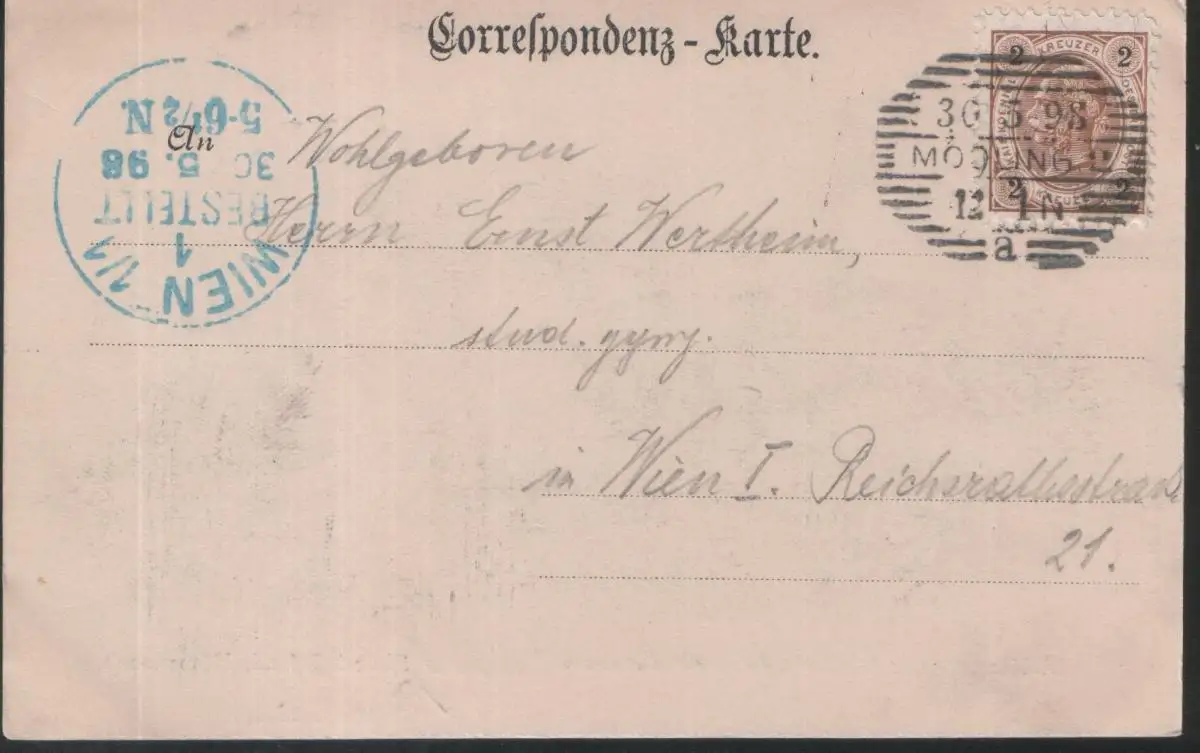 Correspondenz-Karte.
2 KREUZER 2
2 KREUZER 2
30 5 98
MÖDLING
12 1N
a
An
Wohlgeboren
Herrn Ernst Wertheim,
stud. gymn.
in Wien I. Reichsrathsstrasse
21.
WIEN 1/1
1
BESTELLT
30 5. 98
5-6½ N.